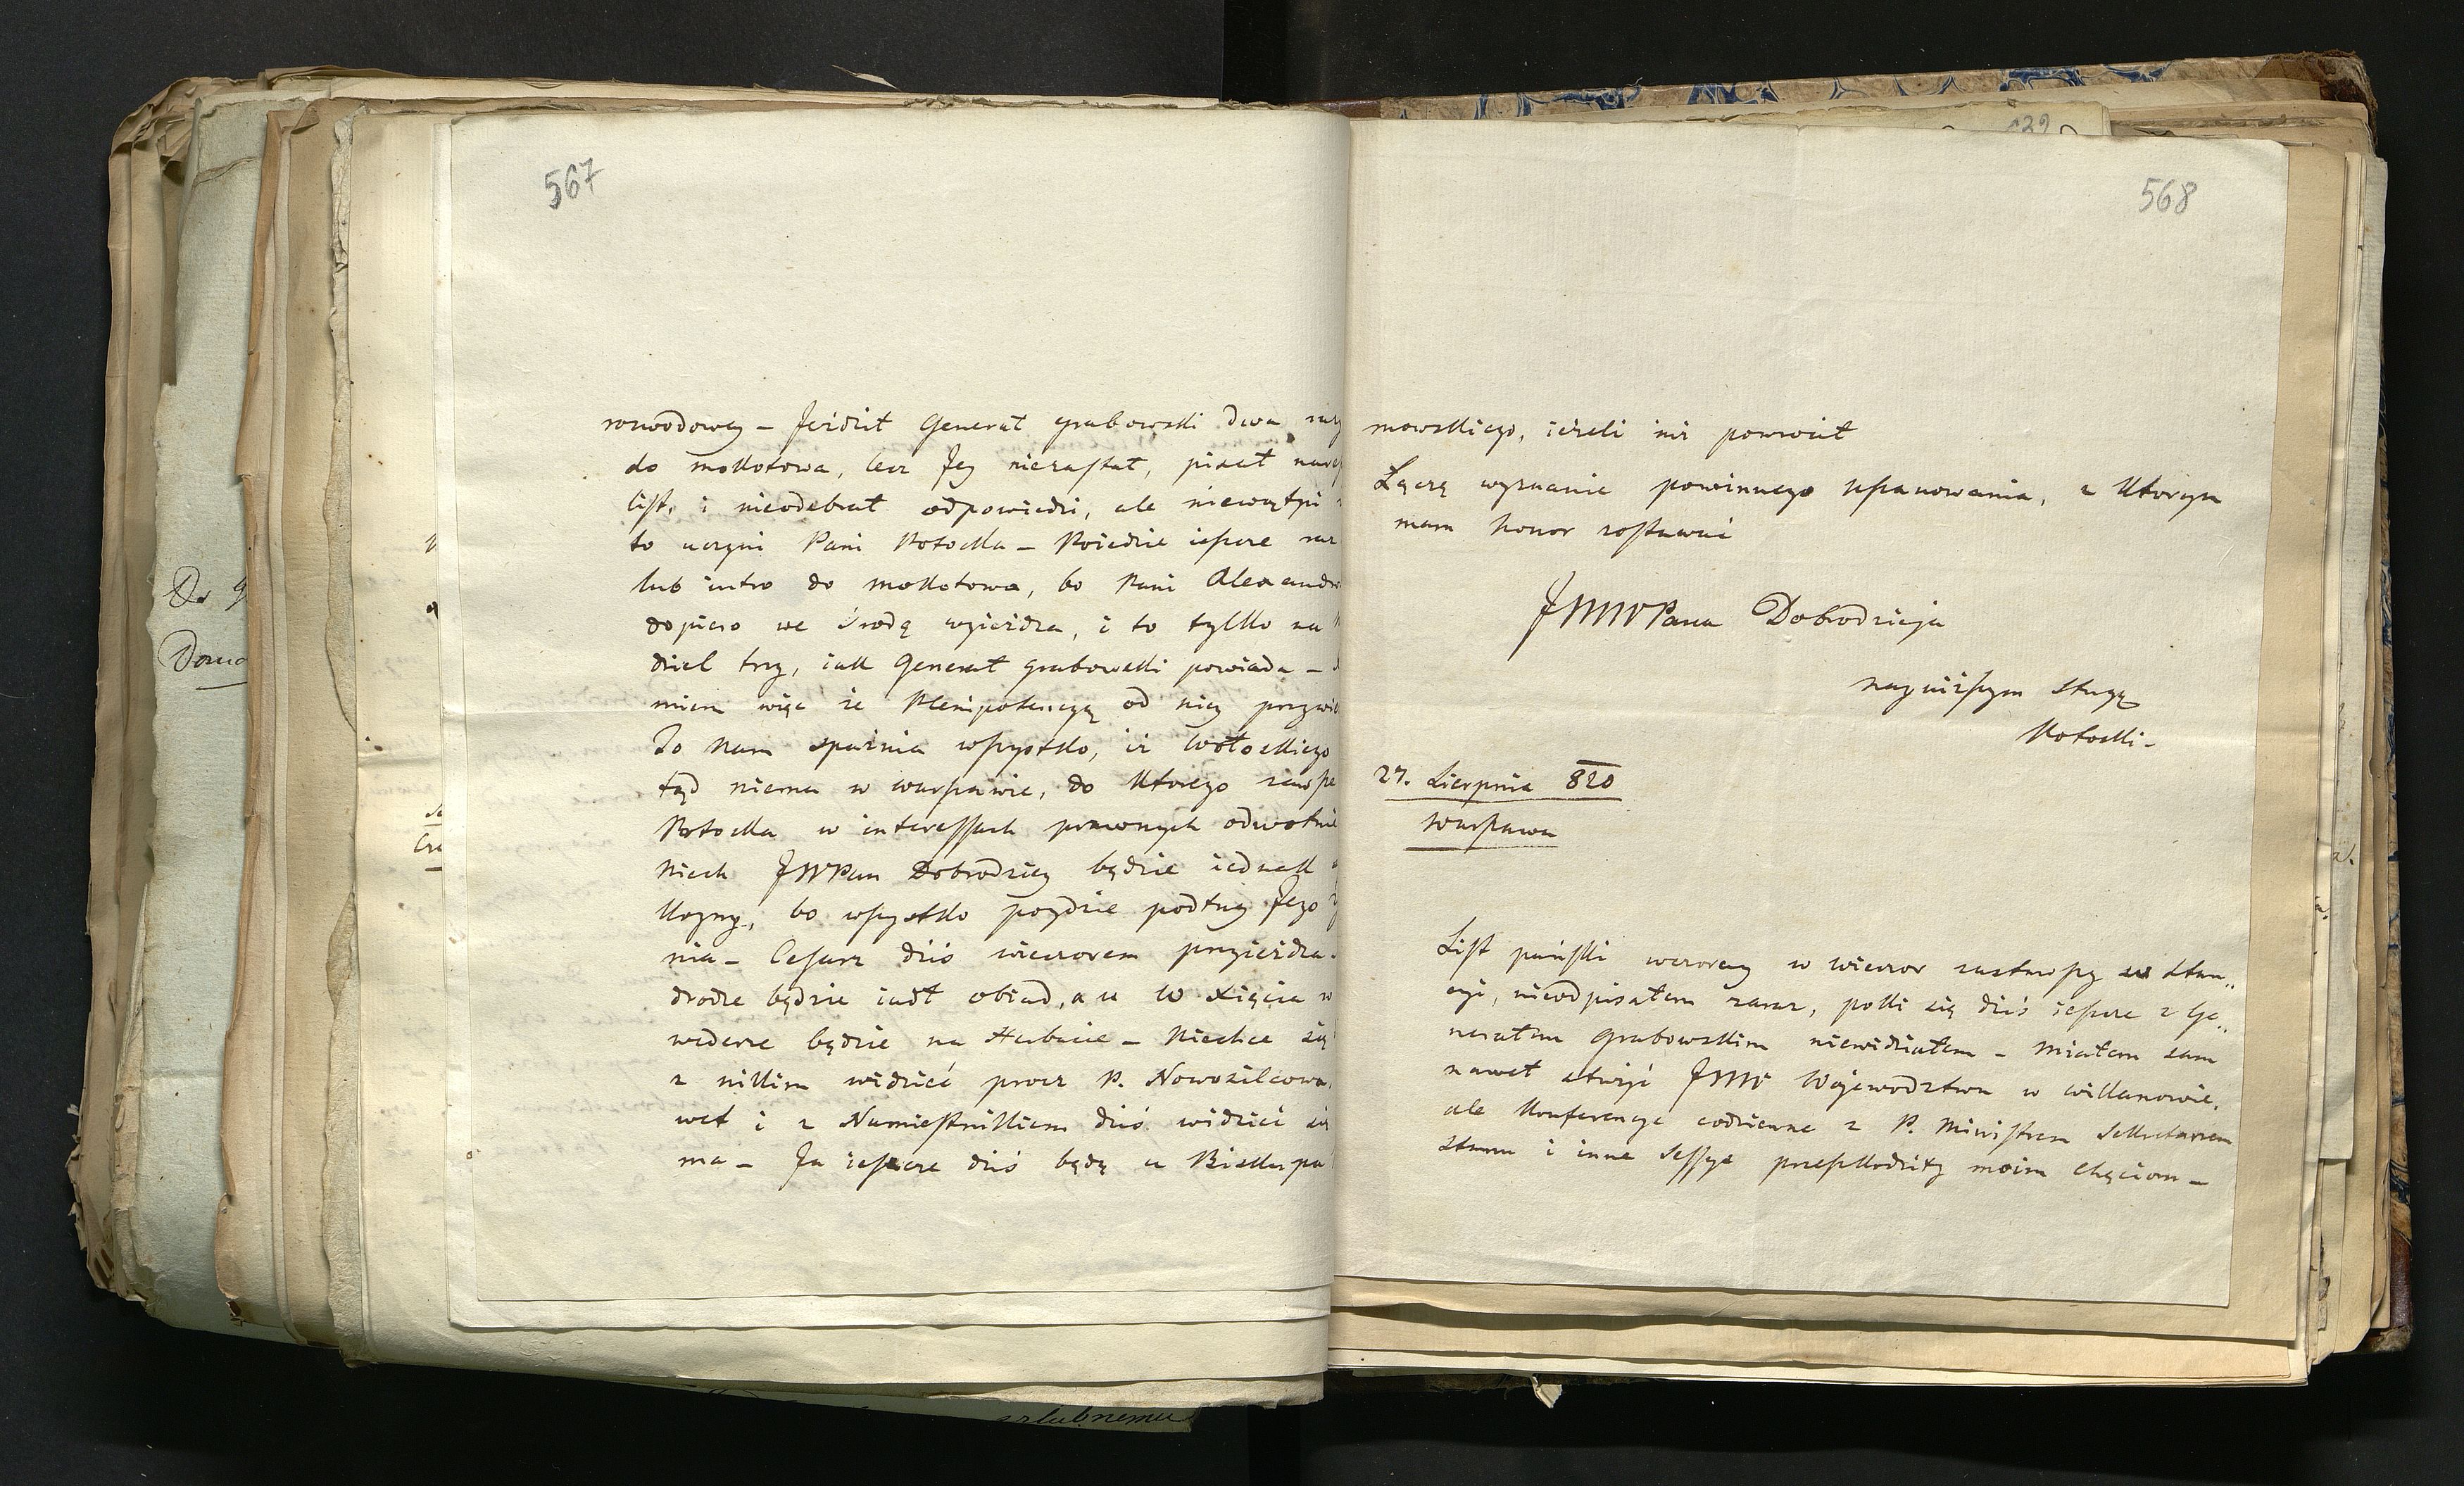 567
rozwodowey – Jeździł Generał Grabowski dwa razy
do Mokotowa, lecz Jey niezastał, pisał
list, i nieodebrał odpowiedzi, ale niewątpi
to uczyni Pani Kotocka – Poiedzie ieszcze raz
lub iutro do Mokotowa, bo Pani Alexandro
dopiero we środę wyieżdża, i to tylko na
dziel trzy, iak Generał Grabowski powiada –
miem więc że Plenipotencyą od niey przywie
To nam spaźnia wszystko, iż Wołockiego
tąd niema w Warszawie, do którego zawsze
Potocka w interessach prawnych odwołuie
Niech JWPan Dobrodziey będzie iednak
koyny, bo wszystko poydzie podług Jego
nia – Cesarz dziś wieczorem przyieżdża.
drodze będzie iadł obiad, a u W Xięcia w
wederze będzie na Herbacie – Niechce się
z nikim widzieć procz P. Nowosilcowa
wet i z Namiestnikiem dziś widzieć się
ma – Ja ieszcze dziś będę u Biskupa
568
mowskiego, ieżeli iuż powrócił
Łączę wyznanie powinnego uszanowania, z którym
mam honor zostawać
JWWPana Dobrodzieja
nayniższym sługą
Potocki –
27. Sierpnia 820
Warszawa
List pański wczoray w wieczor zastawszy w Stan„
cyi, nieodpisałem zaraz, póki się dziś ieszcze z Ge„
nerałem Grabowskim niewidziałem – Miałem sam
nawet służyć JWW Województwu w Willanowie,
ale Konferencye codzienne z P. Ministrem Sekretarzem
Stanu i inne Sessye przeszkodziły moim chęciom –